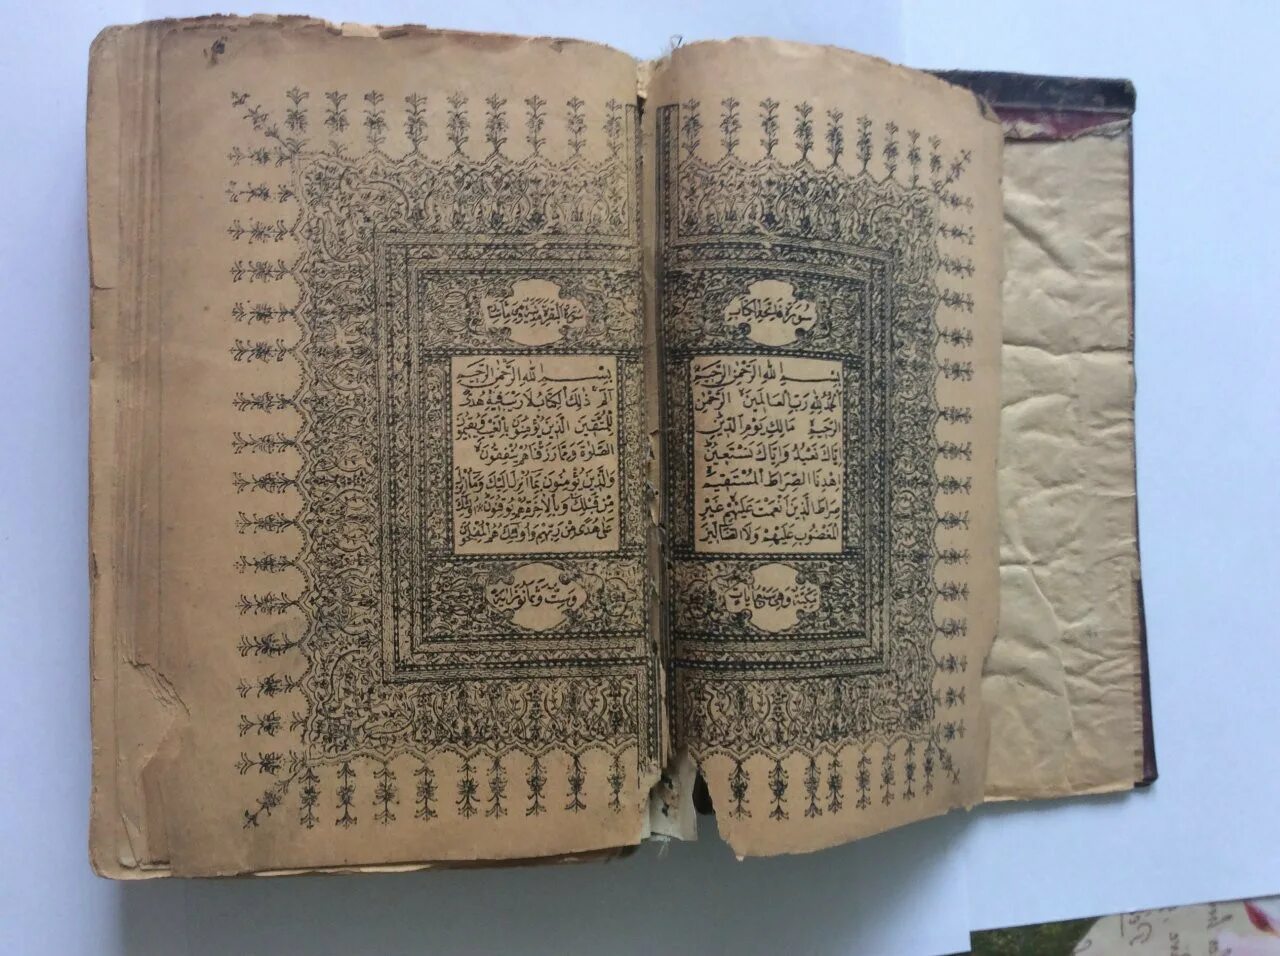 سورة فاتحة الكتاب
بسم الله الرحمن الرحيم
الحمد لله رب العالمين الرحمن
الرحيم مالك يوم الدين
إياك نعبد وإياك نستعين
اهدنا الصراط المستقيم
صراط الذين أنعمت عليهم غير
المغضوب عليهم ولا الضالين
مكية وهي سبع آيات
سورة البقرة مدنية وهي مائتان
بسم الله الرحمن الرحيم
الم ذلك الكتاب لا ريب فيه هدى
للمتقين الذين يؤمنون بالغيب ويقيمون
الصلاة ومما رزقناهم ينفقون
والذين يؤمنون بما أنزل إليك وما أنزل
من قبلك وبالآخرة هم يوقنون أولئك
على هدى من ربهم وأولئك هم المفلحون
وست وثمانون آية